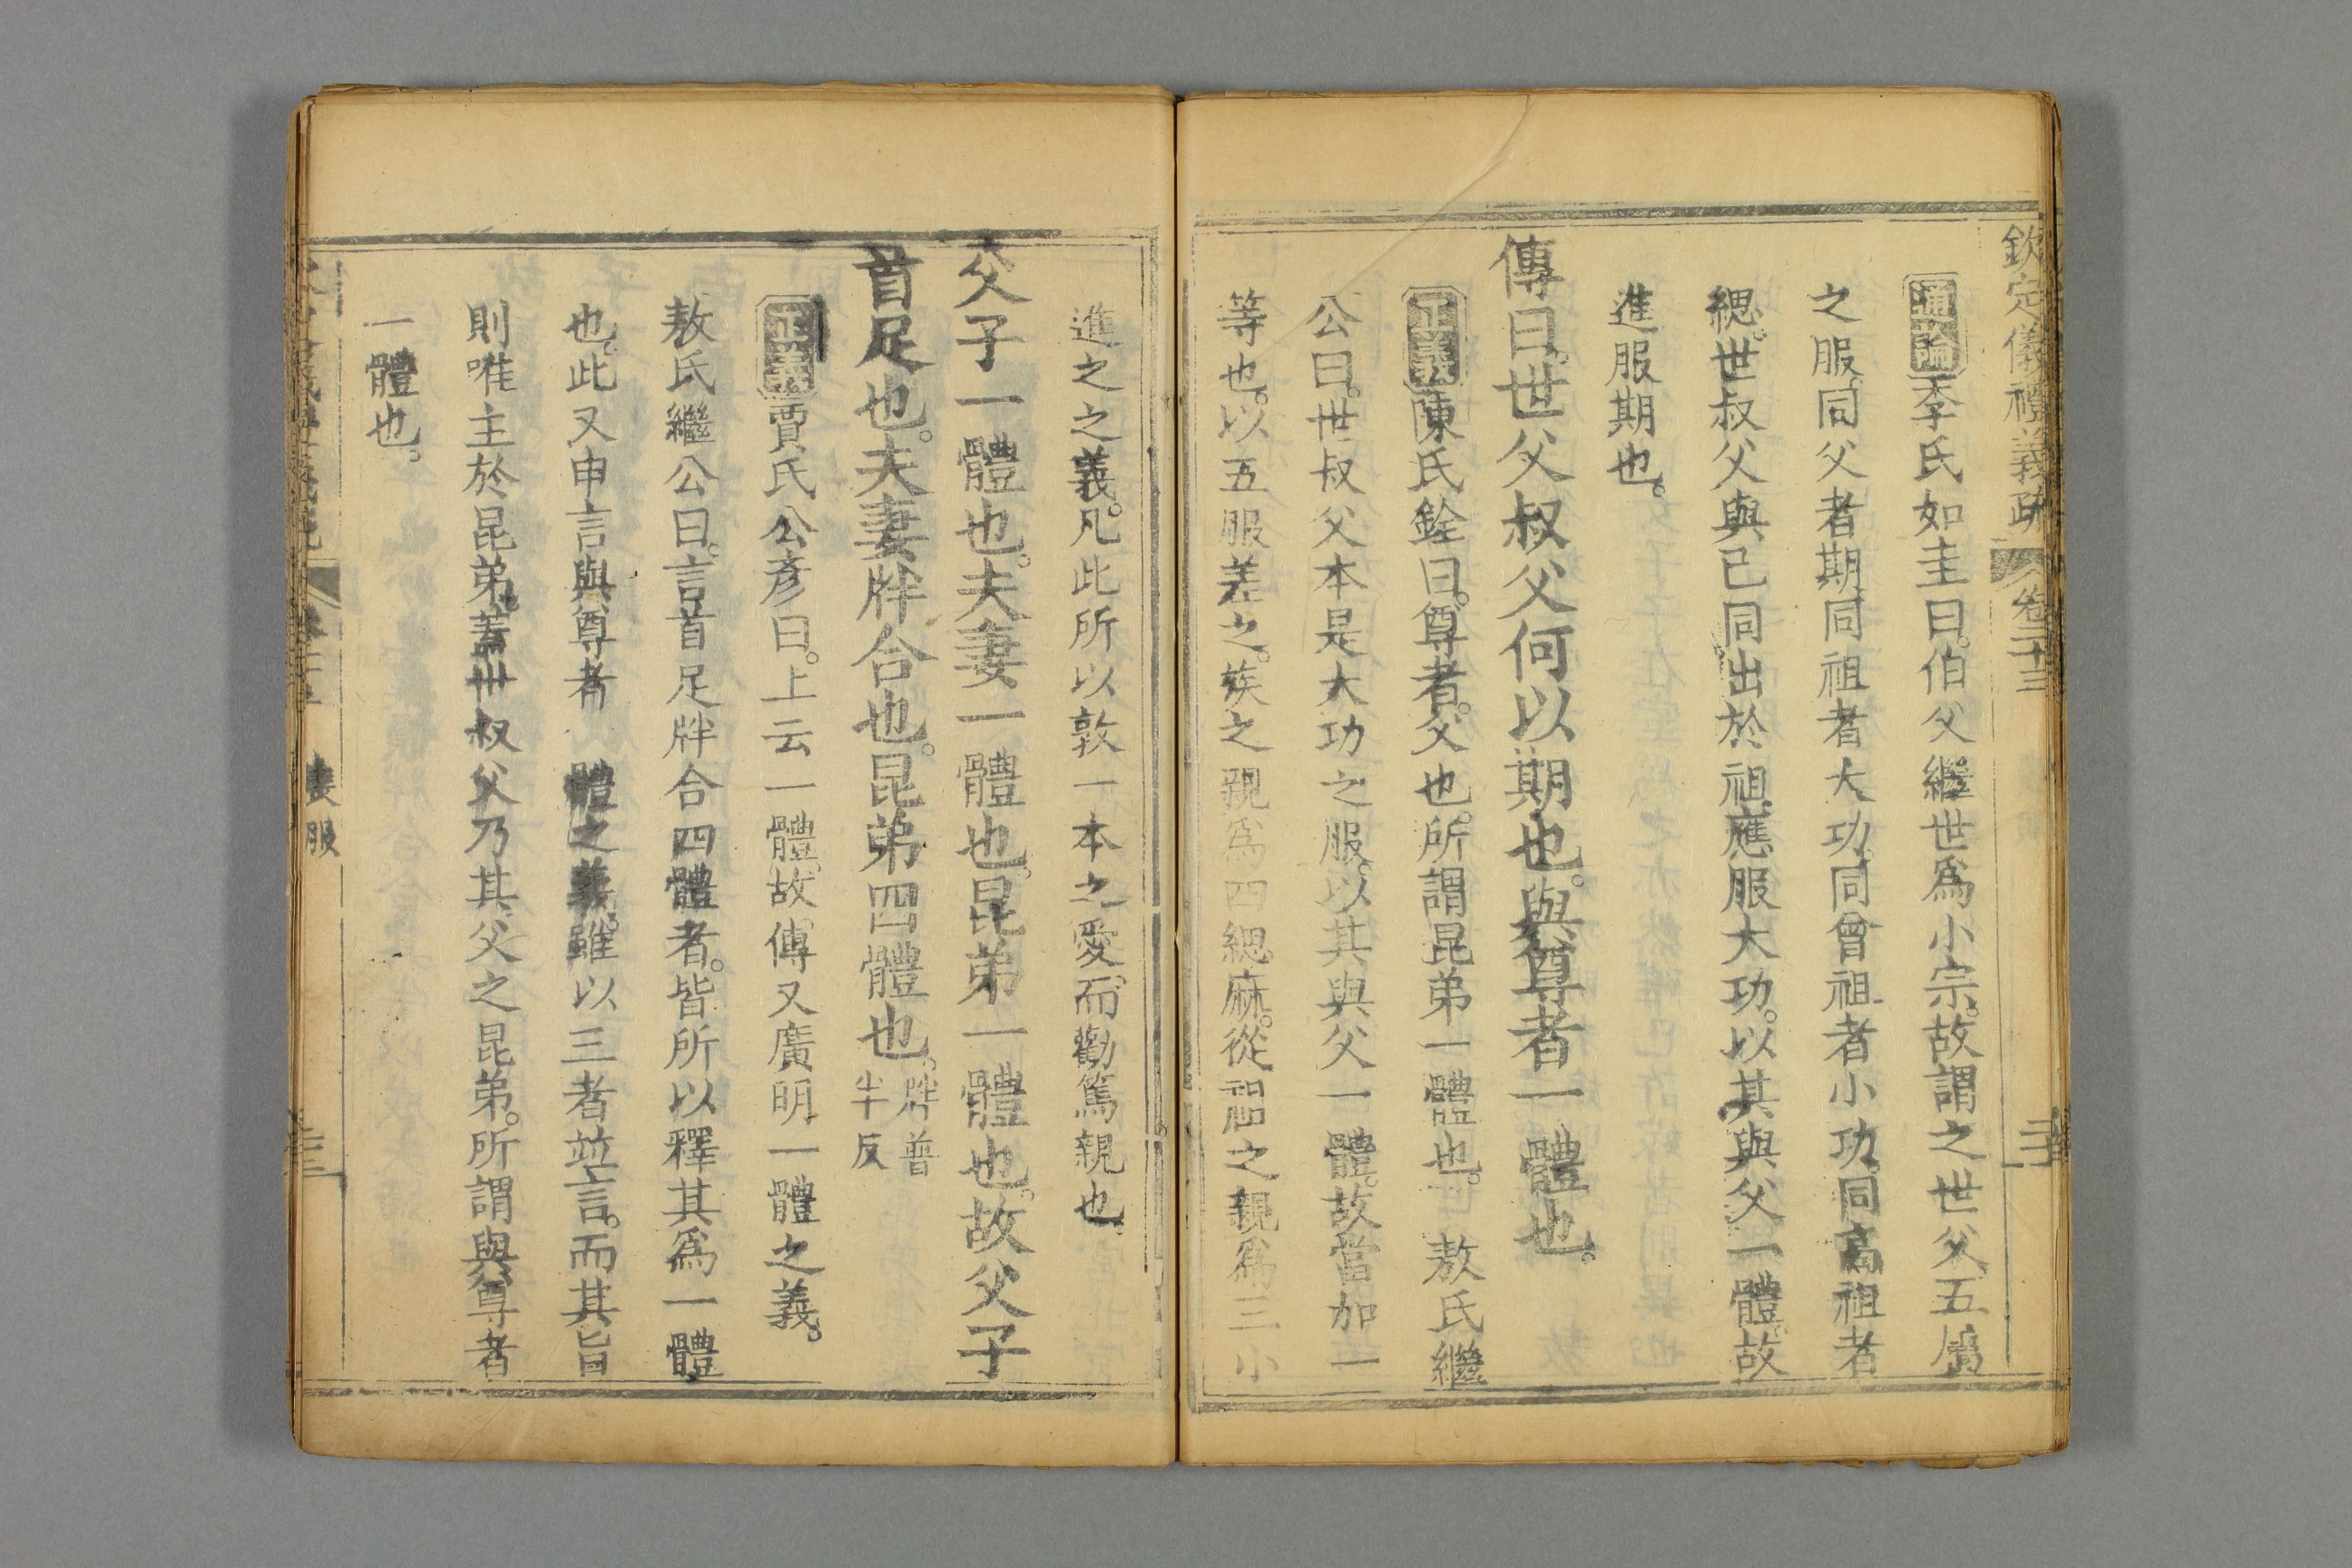 欽定儀禮義疏 卷二十三
通論季氏如圭曰。伯父繼世爲小宗。故謂之世父。五屬
之服。同父者期。同祖者大功。同曾祖者小功。同高祖者
緦。世叔父與己同出於祖。應服大功。以其與父一體。故
進服期也。
傳曰。世父叔父何以期也。與尊者一體也。
正義陳氏銓曰。尊者。父也。所謂昆弟一體也。 敖氏繼
公曰。世叔父本是大功之服。以其與父一體。故當加一
等也。以五服差之。族之親爲四緦麻。從祖之親爲三小
進之之義。凡此所以敦一本之愛。而勸篤親也。
父子一體也。夫妻一體也。昆弟一體也。故父子
首足也。夫妻牉合也。昆弟四體也。牉普
半反
正義賈氏公彥曰。上云一體。故傳又廣明一體之義。
敖氏繼公曰。言首足牉合四體者。皆所以釋其爲一體
也。此又申言與尊者 體之義。雖以三者竝言。而其旨
則唯主於昆弟。蓋世叔父乃其父之昆弟。所謂與尊者
一體也。
喪服